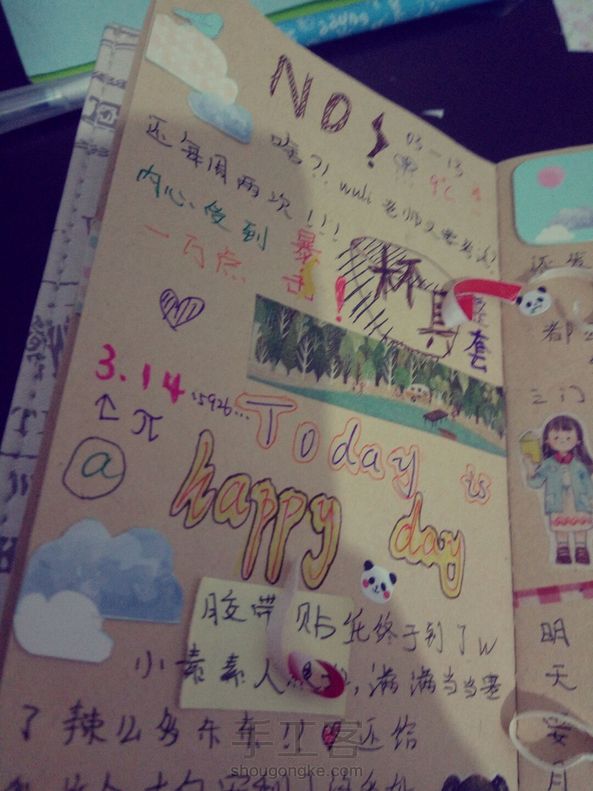 NO!
03-13
9℃
啥?! wuli 老师又要考试
还每周两次!!!
内心受到
一万点
暴击!
杯具
套
3.14
.15926...
↑ π
a
Today is
happy day
胶带贴纸终于到了w
小素素人 , 满满当当塞
了辣么多东东!! 还给
三门
明
天
要
手工客
shougongke.com